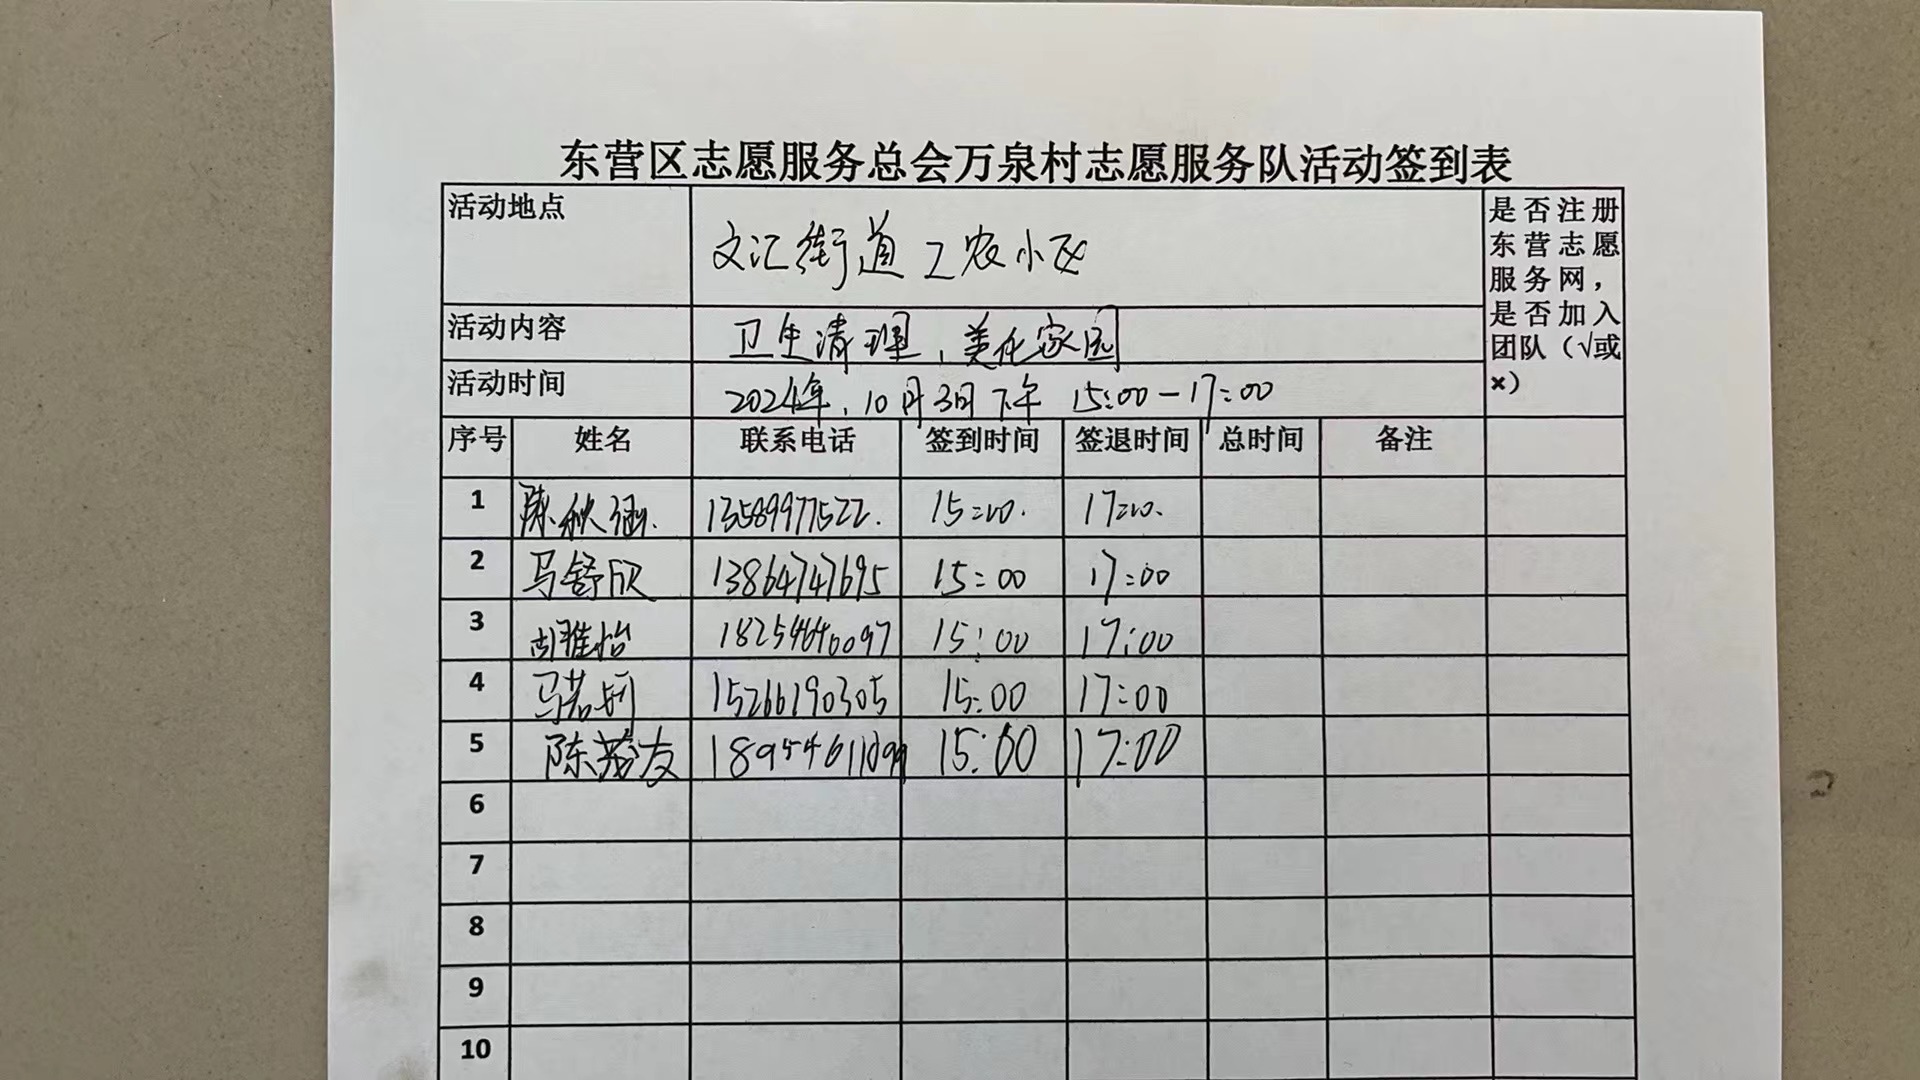 东营区志愿服务总会万泉村志愿服务队活动签到表
活动地点 文汇街道工农小区
是否注册
东营志愿
服务网，
是否加入
团队（√或
×）
活动内容 卫生清理，美化家园
活动时间 2024年，10月3日下午 15:00-17:00
序号 姓名 联系电话 签到时间 签退时间 总时间 备注
1 陈秋涵 13589977522 15:00 17:00
2 马舒欣 13864747695 15:00 17:00
3 胡雅怡 18254646097 15:00 17:00
4 马若 15266190305 15:00 17:00
5 陈 友 15:00 17:00
6
7
8
9
10